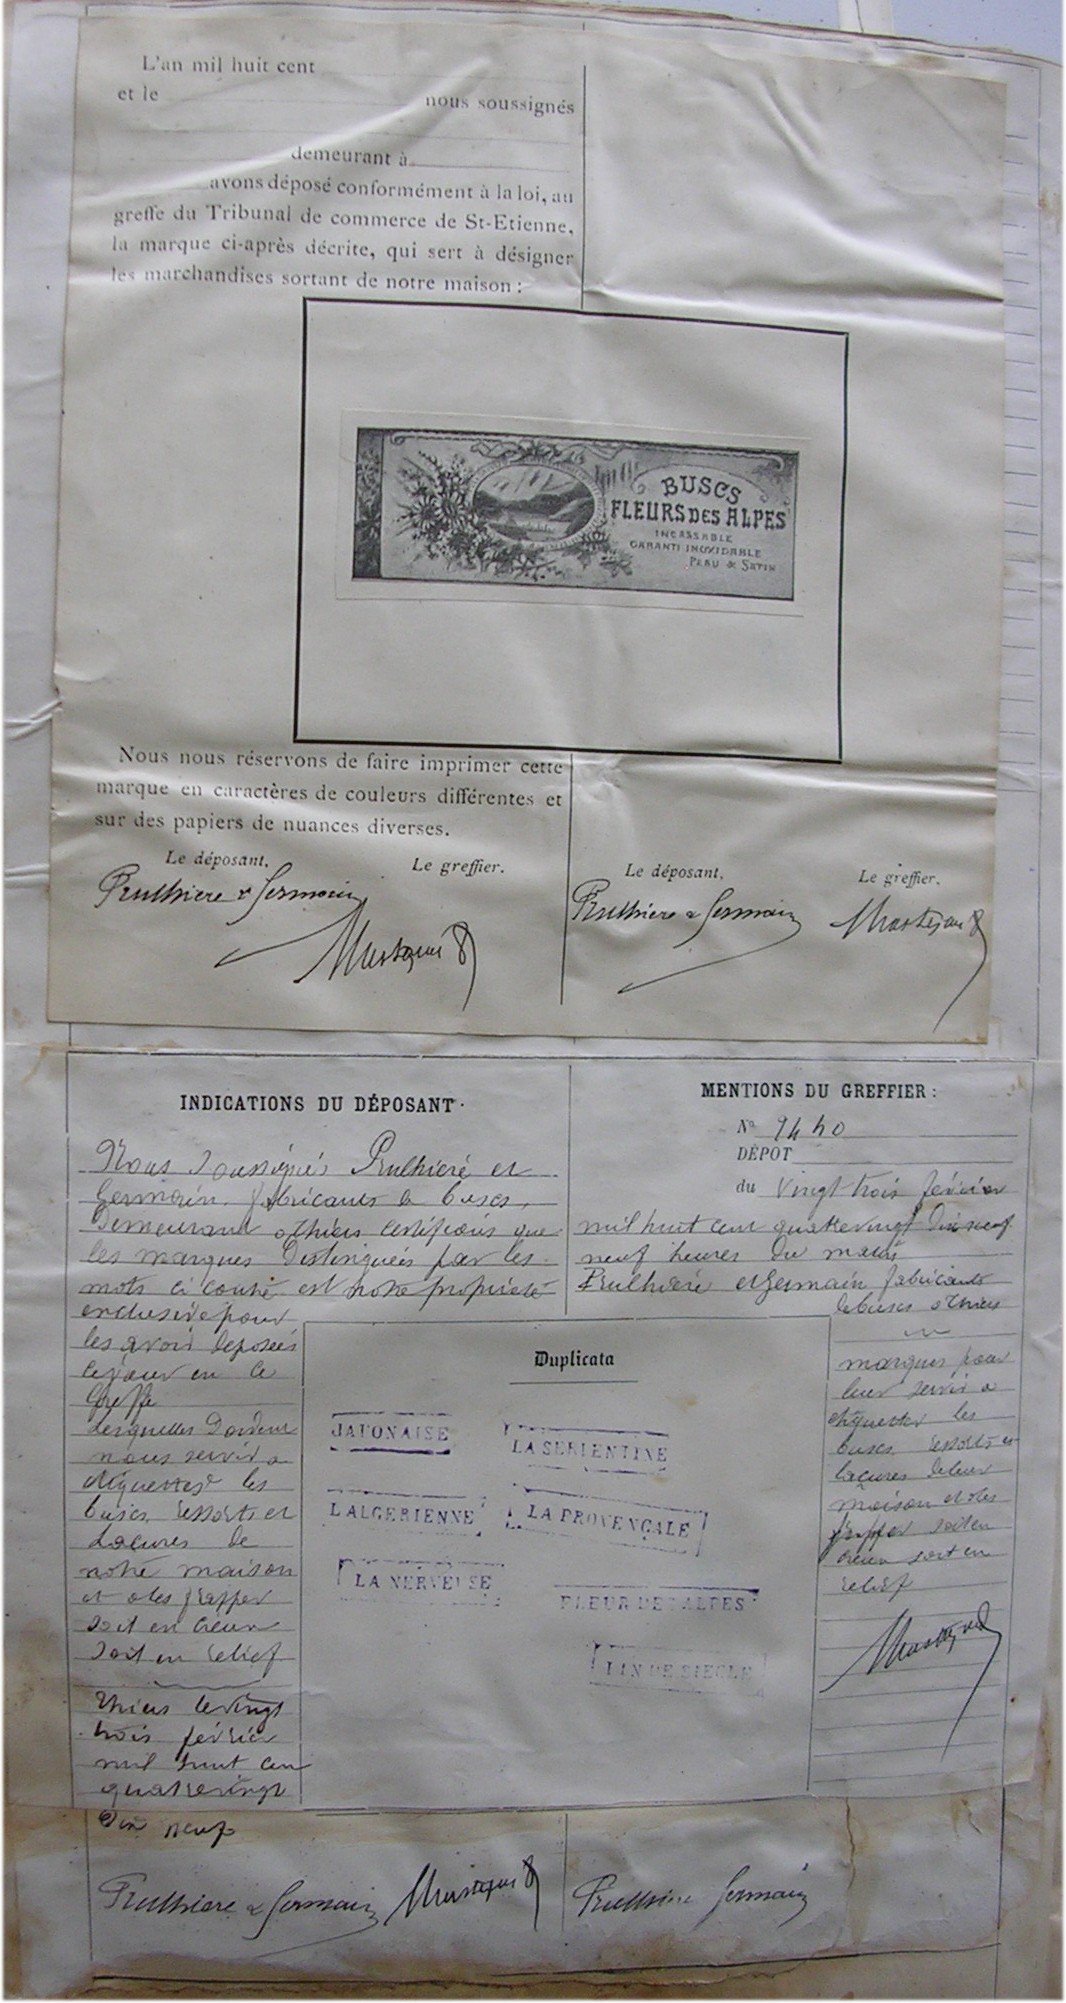 L'an mil huit cent
et le nous soussignés
demeurant à
avons déposé conformément à la loi, au
greffe du Tribunal de commerce de St-Etienne,
la marque ci-après décrite, qui sert à désigner
les marchandises sortant de notre maison :
BUSCS
FLEURS DES ALPES
INCASSABLE
GARANTI INOXIDABLE
PEAU & SATIN
Nous nous réservons de faire imprimer cette
marque en caractères de couleurs différentes et
sur des papiers de nuances diverses.
Le déposant. Le greffier.
Le déposant. Le greffier.
Prulhière & Germain
Prulhière & Germain
INDICATIONS DU DÉPOSANT.
Nous soussignés Prulhière et
Germain fabricants de buscs,
Demeurant à Thiers certifions que
les marques distinguées par les
mots ci contre est notre propriété
exclusive pour
les avoir déposées
ce jour en ce
Greffe
Lesquelles doivent
nous servir a
étiqueter les
buscs ressorts et
Laçures de
notre maison
et a les frapper
soit en creux
soit en relief
Thiers le vingt
trois février
mil huit cent
quatrevingt
Dix neuf
MENTIONS DU GREFFIER :
N° 9440
DÉPOT
du vingt trois février
mil huit cent quatrevingt Dix neuf
neuf heures du matin
Prulhière et Germain fabricants
de buscs a Thiers
marques pour
leur servir a
étiqueter les
buscs ressorts et
laçures de leur
maison et a les
frapper soit en
creux soit en
relief
Duplicata
JAPONAISE
LA SERPENTINE
L'ALGERIENNE
LA PROVENÇALE
LA NERVEUSE
FLEUR DES ALPES
FIN DE SIECLE
Prulhière & Germain
Prulhière Germain